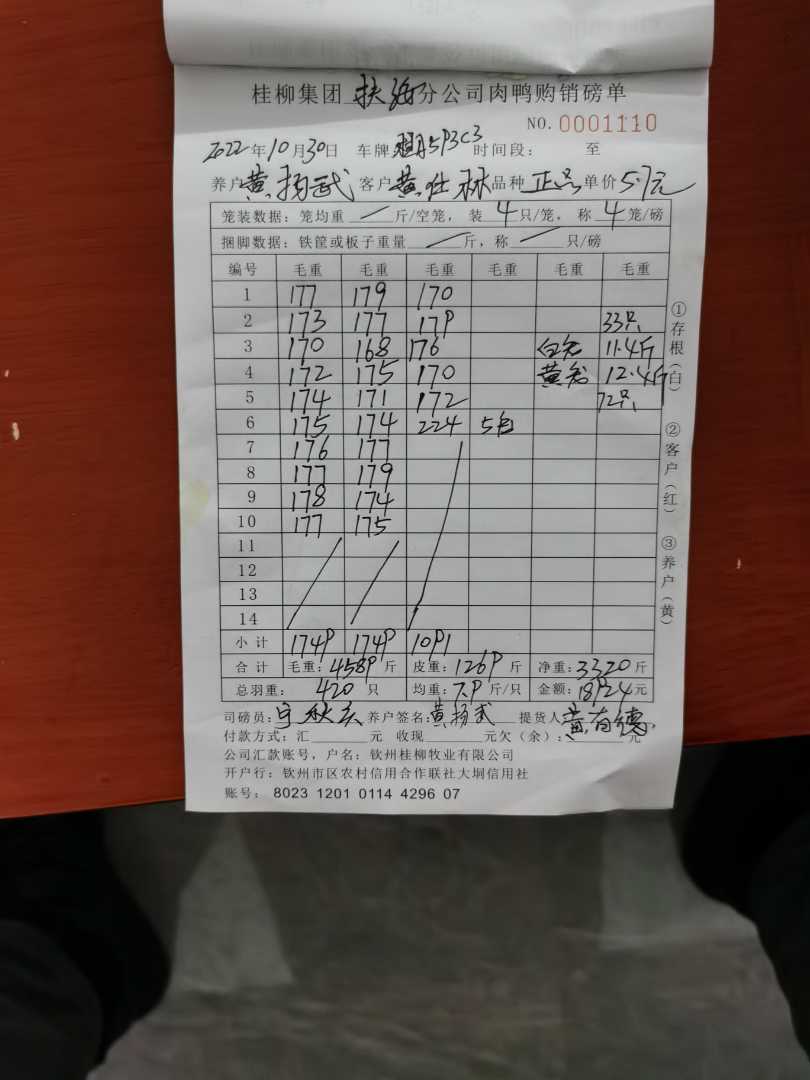 桂柳集团 扶海 分公司肉鸭购销磅单
NO. 0001110
2022年10月30日 车牌 5P3C3 时间段: 至
养户 黄扬武 客户 黄仕林 品种 正品 单价 5.7元
笼装数据: 笼均重 / 斤/空笼, 装 4 只/笼, 称 4 笼/磅
捆脚数据: 铁筐或板子重量 / 斤, 称 / 只/磅
编号 毛重 毛重 毛重 毛重 毛重 毛重
1 177 179 170
2 173 177 179 33只
3 170 168 176 白宏 11.4斤
4 172 175 170 黄宏 12.4斤
5 174 171 172 72只
6 175 174 224 5白
7 176 177
8 177 179
9 178 174
10 177 175
11
12
13
14
小计 1749 1749 1091
合计 毛重: 4589 斤 皮重: 1269 斤 净重: 3320 斤
总羽重: 420 只 均重: 7.9 斤/只 金额: 18924 元
司磅员: 宁秋 养户签名: 黄扬武 提货人: 黄有德
付款方式: 汇 元 收现 元欠(余): 元
公司汇款账号, 户名: 钦州桂柳牧业有限公司
开户行: 钦州市区农村信用合作联社大垌信用社
账号: 8023 1201 0114 4296 07
①存根(白) ②客户(红) ③养户(黄)